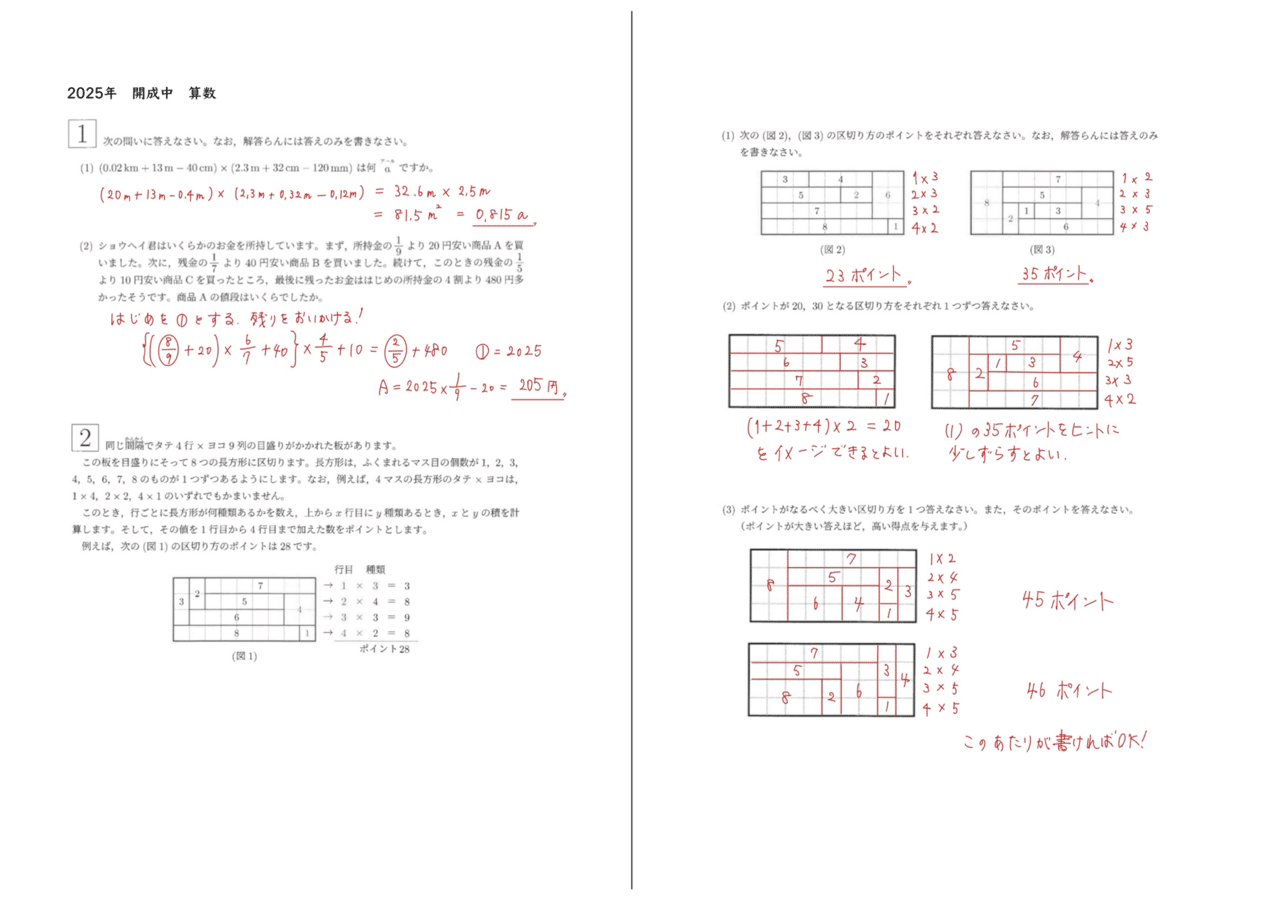 2025年　開成中　算数
1 次の問いに答えなさい。なお，解答らんには答えのみを書きなさい。
(1) (0.02 km + 13 m − 40 cm) × (2.3 m + 32 cm − 120 mm) は何 a ですか。
アール
(20m + 13m − 0.4m) × (2.3m + 0.32m − 0.12m) = 32.6m × 2.5m
= 81.5 m² = 0.815 a 。
(2) ショウヘイ君はいくらかのお金を所持しています。まず，所持金の 1/9 より 20 円安い商品 A を買
いました。次に，残金の 1/7 より 40 円安い商品 B を買いました。続けて，このときの残金の 1/5
より 10 円安い商品 C を買ったところ，最後に残ったお金ははじめの所持金の 4 割より 480 円多
かったそうです。商品 A の値段はいくらでしたか。
はじめを ① とする. 残りをおいかける!
{((8/9) + 20) × 6/7 + 40} × 4/5 + 10 = (2/5) + 480 ① = 2025
A = 2025 × 1/9 − 20 = 205 円 。
2 同じ間隔でタテ 4 行 × ヨコ 9 列の目盛りがかかれた板があります。
かんかく
この板を目盛りにそって 8 つの長方形に区切ります。長方形は，ふくまれるマス目の個数が 1, 2, 3,
4, 5, 6, 7, 8 のものが 1 つずつあるようにします。なお，例えば，4 マスの長方形のタテ × ヨコは，
1 × 4，2 × 2，4 × 1 のいずれでもかまいません。
このとき，行ごとに長方形が何種類あるかを数え，上から x 行目に y 種類あるとき，x と y の積を計
算します。そして，その値を 1 行目から 4 行目まで加えた数をポイントとします。
例えば，次の (図 1) の区切り方のポイントは 28 です。
行目 種類
7
→ 1 × 3 = 3
3 2 5 4
→ 2 × 4 = 8
6
→ 3 × 3 = 9
8 1
→ 4 × 2 = 8
ポイント 28
(図 1)
(1) 次の (図 2)，(図 3) の区切り方のポイントをそれぞれ答えなさい。なお，解答らんには答えのみ
を書きなさい。
3 4 1×3
5 2 6 2×3
7 3×2
8 1 4×2
(図 2)
23 ポイント 。
7 1×2
8 5 4 2×3
2 1 3 3×5
6 4×3
(図 3)
35 ポイント 。
(2) ポイントが 20，30 となる区切り方をそれぞれ 1 つずつ答えなさい。
5 4
6 3
7 2
8 1
(1+2+3+4)×2 = 20
をイメージできるとよい.
5 4 1×3
8 2 1 3 2×5
6 3×3
7 4×2
(1) の35ポイントをヒントに
少しずらすとよい.
(3) ポイントがなるべく大きい区切り方を 1 つ答えなさい。また，そのポイントを答えなさい。
(ポイントが大きい答えほど，高い得点を与えます。)
7 1×2
8 5 2 3 2×4
6 4 3×5
1 4×5
45 ポイント
7 1×3
5 3 4 2×4
8 2 6 3×5
1 4×5
46 ポイント
このあたりが書ければOK!